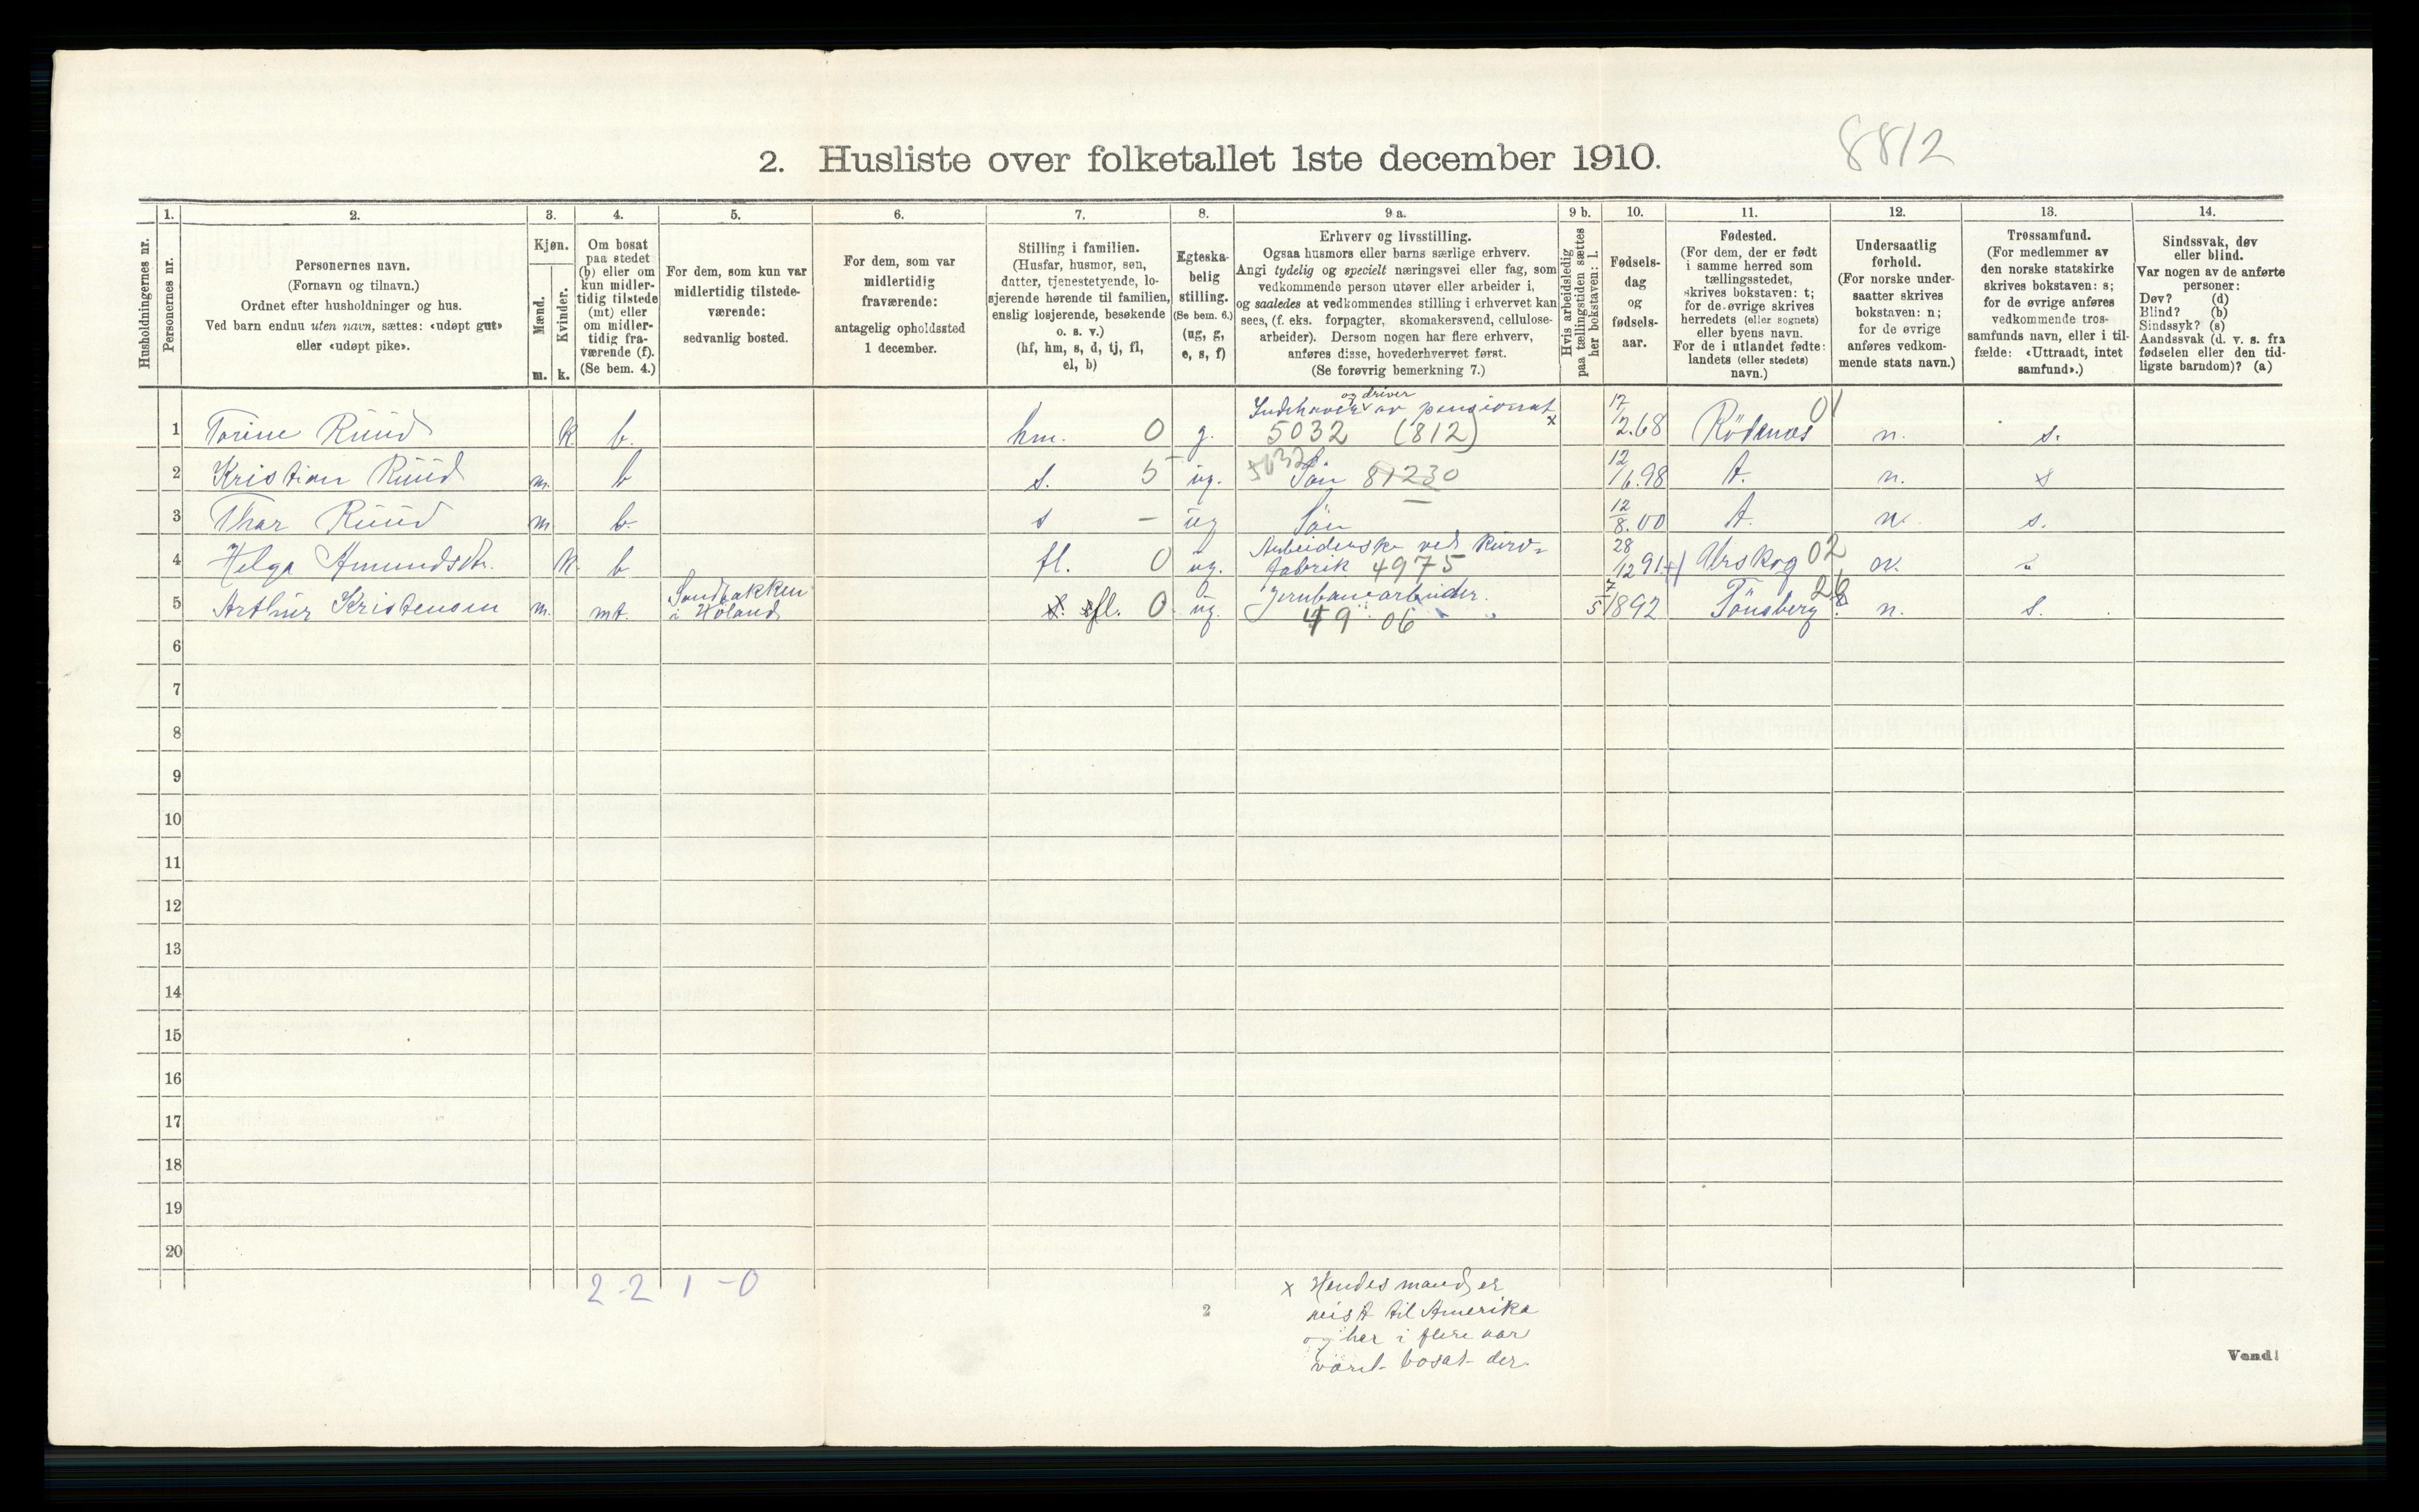 8812
2. Husliste over folketallet 1ste december 1910.
Husholdningernes nr.
1.
Personernes nr.
2.
Personernes navn.
(Fornavn og tilnavn.)
Ordnet efter husholdninger og hus.
Ved barn endnu uten navn, sættes: «udøpt gut»
eller «udøpt pike».
3.
Kjøn.
Mænd.
Kvinder.
m. k.
4.
Om bosat
paa stedet
(b) eller om
kun midler-
tidig tilstede
(mt) eller
om midler-
tidig fra-
værende (f).
(Se bem. 4.)
5.
For dem, som kun var
midlertidig tilstede-
værende:
sedvanlig bosted.
6.
For dem, som var
midlertidig
fraværende:
antagelig opholdssted
1 december.
7.
Stilling i familien.
(Husfar, husmor, søn,
datter, tjenestetyende, lo-
sjerende hørende til familien,
enslig losjerende, besøkende
o. s. v.)
(hf, hm, s, d, tj, fl,
el, b)
8.
Egteska-
belig
stilling.
(Se bem. 6.)
(ug, g,
e, s, f)
9 a.
Erhverv og livsstilling.
Ogsaa husmors eller barns særlige erhverv.
Angi tydelig og specielt næringsvei eller fag, som
vedkommende person utøver eller arbeider i,
og saaledes at vedkommendes stilling i erhvervet kan
sees, (f. eks. forpagter, skomakersvend, cellulose-
arbeider). Dersom nogen har flere erhverv,
anføres disse, hovederhvervet først.
(Se forøvrig bemerkning 7.)
9 b.
Hvis arbeidsledig
paa tællingstiden sættes
her bokstaven: l.
10.
Fødsels-
dag
og
fødsels-
aar.
11.
Fødested.
(For dem, der er født
i samme herred som
tællingsstedet,
skrives bokstaven: t;
for de øvrige skrives
herredets (eller sognets)
eller byens navn.
For de i utlandet fødte:
landets (eller stedets)
navn.)
12.
Undersaatlig
forhold.
(For norske under-
saatter skrives
bokstaven: n;
for de øvrige
anføres vedkom-
mende stats navn.)
13.
Trossamfund.
(For medlemmer av
den norske statskirke
skrives bokstaven: s;
for de øvrige anføres
vedkommende tros-
samfunds navn, eller i til-
fælde: «Uttraadt, intet
samfund».)
14.
Sindssvak, døv
eller blind.
Var nogen av de anførte
personer:
Døv? (d)
Blind? (b)
Sindssyk? (s)
Aandssvak (d. v. s. fra
fødselen eller den tid-
ligste barndom)? (a)
og driver
Indehaver av pensionat x
1 Torine Ruud k. b. hm. 0 g. 5032 (812) 17/2.68 Rödenæs 01 n. s.
2 Kristian Ruud m. b s. 5 ug. 5032 Sön 81230 12/6.98 t. n. s
3 Thor Ruud m. b. s – ug Sön 12/8.00 t. n. s.
Arbeiderske ved Kurv-
4 Helga Amundsdtr. k. b fl. 0 ug. fabrik 4975 28/12 91 Urskog 02 n. "
Sandbakken
5 Arthur Kristensen m. mt. i Höland fl. 0 ug. Jernbanearbeider. 7/5 1892 Tönsberg 26 n. s.
49 06
6
7
8
9
10
11
12
13
14
15
16
17
18
19
20
2-2 1-0
x Hendes mand er
reist til Amerika
og har i flere aar
vært bosat der.
2
Vend!